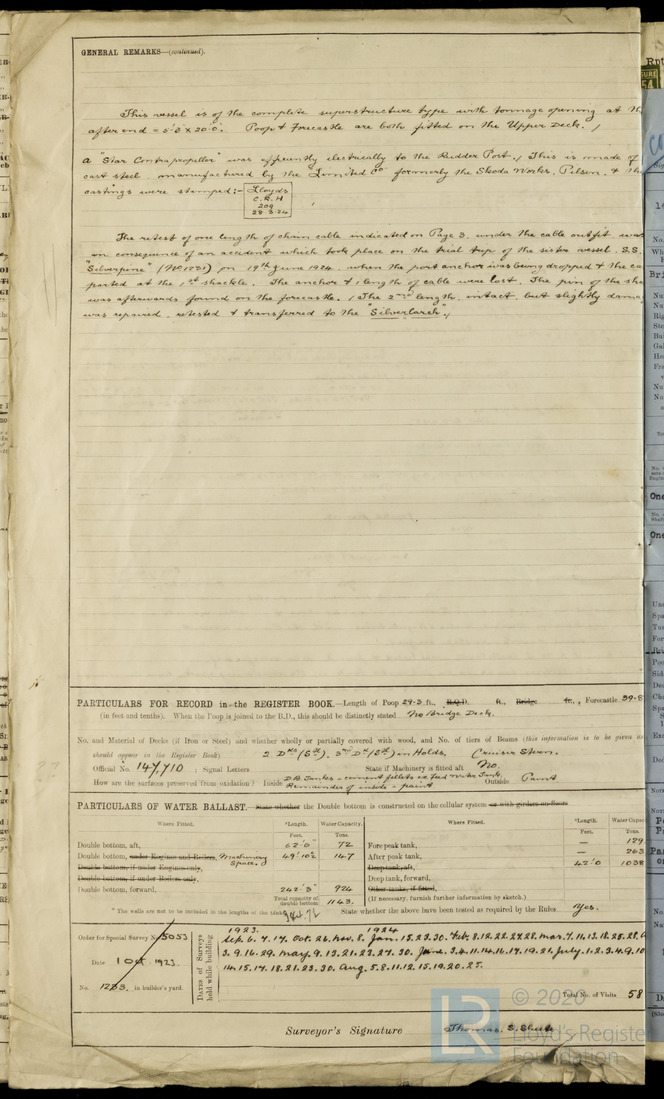 GENERAL REMARKS—(continued).
This vessel is of the complete superstructure type with tonnage opening at th
after end = 5.8 x 20.0. Poop & Forecastle are both fitted on the Upper Deck.
A "Star Contrapropellor" was efficiently electrically to the Rudder Post. This is made of
cast steel manufactured by the Limited Co formerly the Skoda Works, Pilsen. & the
castings were stamped:- Lloyds
C.R.H
209
28.3.24
The retest of one length of chain cable indicated on Page 3. under the cable outfit was
in consequence of an accident which took place on the trial trip of the sister vessel S.S.
"Silverpine" (No 1231) on 17th June 1924, when the port anchor was being dropped & the ca
parted at the 1st shackle. The anchor & 1 length of cable were lost. The pin of the sha
was afterwards found on the forecastle. The 2nd length, intact, but slightly dama
was repaired, retested & transferred to the "Silverlarch".
PARTICULARS FOR RECORD in the REGISTER BOOK.—Length of Poop 29.3 ft., R.Q.D. ft., Bridge ft., Forecastle 39.8
(in feet and tenths). When the Poop is joined to the B.D., this should be distinctly stated No Bridge Deck.
No. and Material of Decks (if Iron or Steel) and whether wholly or partially covered with wood, and No. of tiers of Beams (this information is to be given as
should appear in the Register Book) 2 Dks (Stl). 3rd Dk (Stl) in Holds. Cruiser Stern.
Official No. 147,710 ; Signal Letters State if Machinery is fitted aft No.
How are the surfaces preserved from oxidation? Inside D.B. Tanks - cement fillets in Feed Water Tank. Outside Paint
Remainder of inside - paint
PARTICULARS OF WATER BALLAST.—State whether the Double bottom is constructed on the cellular system or with girders on floors
Where Fitted. *Length. Water Capacity. Where Fitted. *Length. Water Capac
Feet. Tons. Feet. Tons.
Double bottom, aft, 62.0 72 Fore peak tank, — 129
Double bottom, under Engines and Boilers, Machinery Space, 49.10½ 147 After peak tank, — 263
Double bottom, if under Engines only, Deep tank, aft, 42.0 1038
Double bottom, if under Boilers only, Deep tank, forward,
Double bottom, forward, 242.3 924 Other tanks, if fitted,
Total capacity of double bottom 1143. (If necessary, furnish further information by sketch.)
* The wells are not to be included in the lengths of the State whether the above have been tested as required by the Rules Yes.
Order for Special Survey No. 5053
Date 1 Oct 1923.
No. in builder's yard.
Dates of Surveys held while building
1923. 1924
3. 9. 16. 29. May. 9. 13. 21. 22. 27. 30. June. 3. 4. 11. 14. 16. 17. 19. 21. July. 1. 2. 3. 4. 9. 10
14. 15. 17. 18. 21. 23. 30. Aug. 5. 8. 11. 12. 15. 19. 20. 25.
Total No. of Visits 58
Surveyor's Signature Thomas.
LR © 2020
Lloyd's Register
Foundation